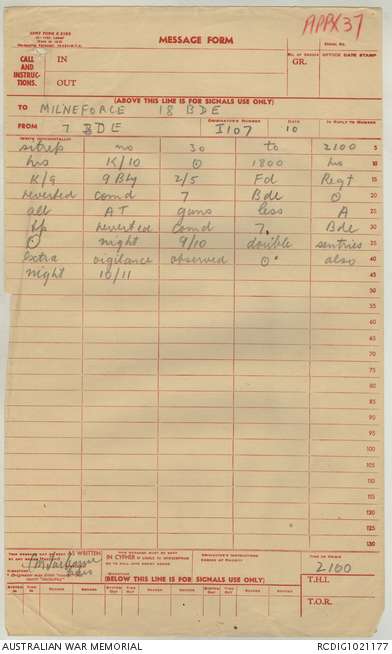 APPX 37
MESSAGE FORM
SERIAL No.
CALL AND INSTRUC-TIONS.
IN
OUT
GR.
OFFICE DATE STAMP
(ABOVE THIS LINE IS FOR SIGNALS USE ONLY)
TO MILNEFORCE 18 BDE
FROM 7 BDE
ORIGINATOR'S NUMBER I107
DATE 10
IN REPLY TO NUMBER
sitrep no 30 to 2100 5
hrs K/10 ⊙ 1800 hrs 10
K/9 9 Bty 2/5 Fd Regt 15
reverted comd 7 Bde ⊙ 20
all AT guns less A 25
tp reverted comd 7. Bde 30
⊙ night 9/10 double sentries 35
extra vigilance observed ⊙ also 40
night 10/11 45
50
55
60
65
70
75
80
85
90
95
100
105
110
115
120
125
130
AS WRITTEN
IN CYPHER
ORIGINATOR'S INSTRUCTIONS
DEGREE OF PRIORITY
TIME OF ORIGIN
2100
T.H.I.
T.O.R.
(BELOW THIS LINE IS FOR SIGNALS USE ONLY)
AUSTRALIAN WAR MEMORIAL
RCDIG1021177